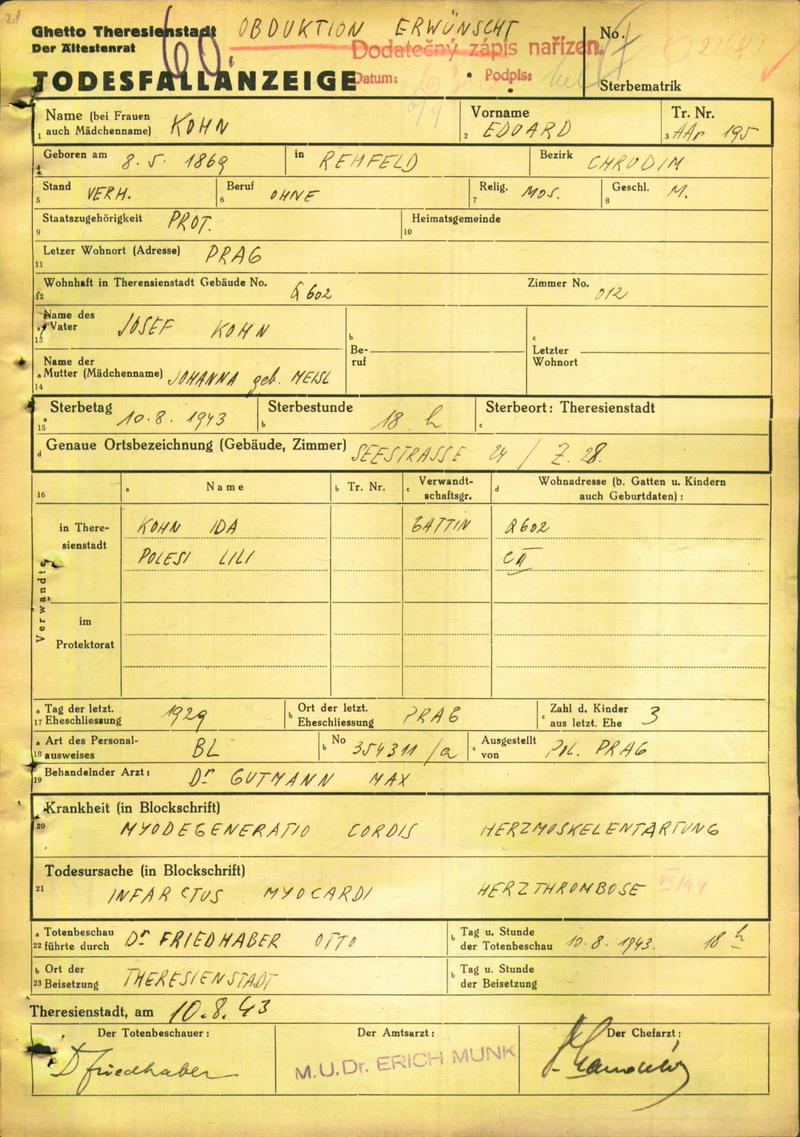 Ghetto Theresienstadt
Der Ältestenrat
OBDUKTION ERWÜNSCHT
60.
Dodatečný zápis nařízen.
Datum: Podpis:
No.
TODESFALLANZEIGE
Sterbematrik
Name (bei Frauen auch Mädchenname) KOHN
1
Vorname EDUARD
2
Tr. Nr. AAr 195
3
Geboren am 8. 5. 1869 in REHFELD Bezirk CHRUDIM
4
Stand VERH. Beruf OHNE Relig. MOS. Geschl. M.
5 6 7 8
Staatszugehörigkeit PROT. Heimatsgemeinde
9 10
Letzer Wohnort (Adresse) PRAG
11
Wohnhaft in Therensienstadt Gebäude No. Q 602 Zimmer No. 012
12
Name des Vater JOSEF KOHN
a 13
b Beruf
c Letzter Wohnort
Name der Mutter (Mädchenname) JOHANNA geb. MEISL
a 14
Sterbetag 10. 8. 1943 Sterbestunde 18 h Sterbeort: Theresienstadt
a 15 b c
d Genaue Ortsbezeichnung (Gebäude, Zimmer) SEESTRASSE 24 / Z. 28.
16 a Name b Tr. Nr. c Verwandtschaftsgr. d Wohnadresse (b. Gatten u. Kindern auch Geburtdaten):
Verwandte
in Theresienstadt
KOHN IDA GATTIN Q 602
POLESI LILI C II
im Protektorat
a 17 Tag der letzt. Eheschliessung 1929 b Ort der letzt. Eheschliessung PRAG c Zahl d. Kinder aus letzt. Ehe 3
a 18 Art des Personalausweises BL b No 354311/a c Ausgestellt von POL. PRAG
19 Behandelnder Arzt: Dr GUTMANN MAX
Krankheit (in Blockschrift)
20 MYODEGENERATIO CORDIS HERZMUSKELENTARTUNG
Todesursache (in Blockschrift)
21 INFARCTUS MYOCARDI HERZTHROMBOSE
a 22 Totenbeschau führte durch Dr FRIEDHABER OTTO b Tag u. Stunde der Totenbeschau 10. 8. 1943. 18 h
b 23 Ort der Beisetzung THERESIENSTADT b Tag u. Stunde der Beisetzung
Theresienstadt, am 10. 8. 43
Der Totenbeschauer: Der Amtsarzt: Der Chefarzt:
Dr Friedhaber M.U.Dr. ERICH MUNK